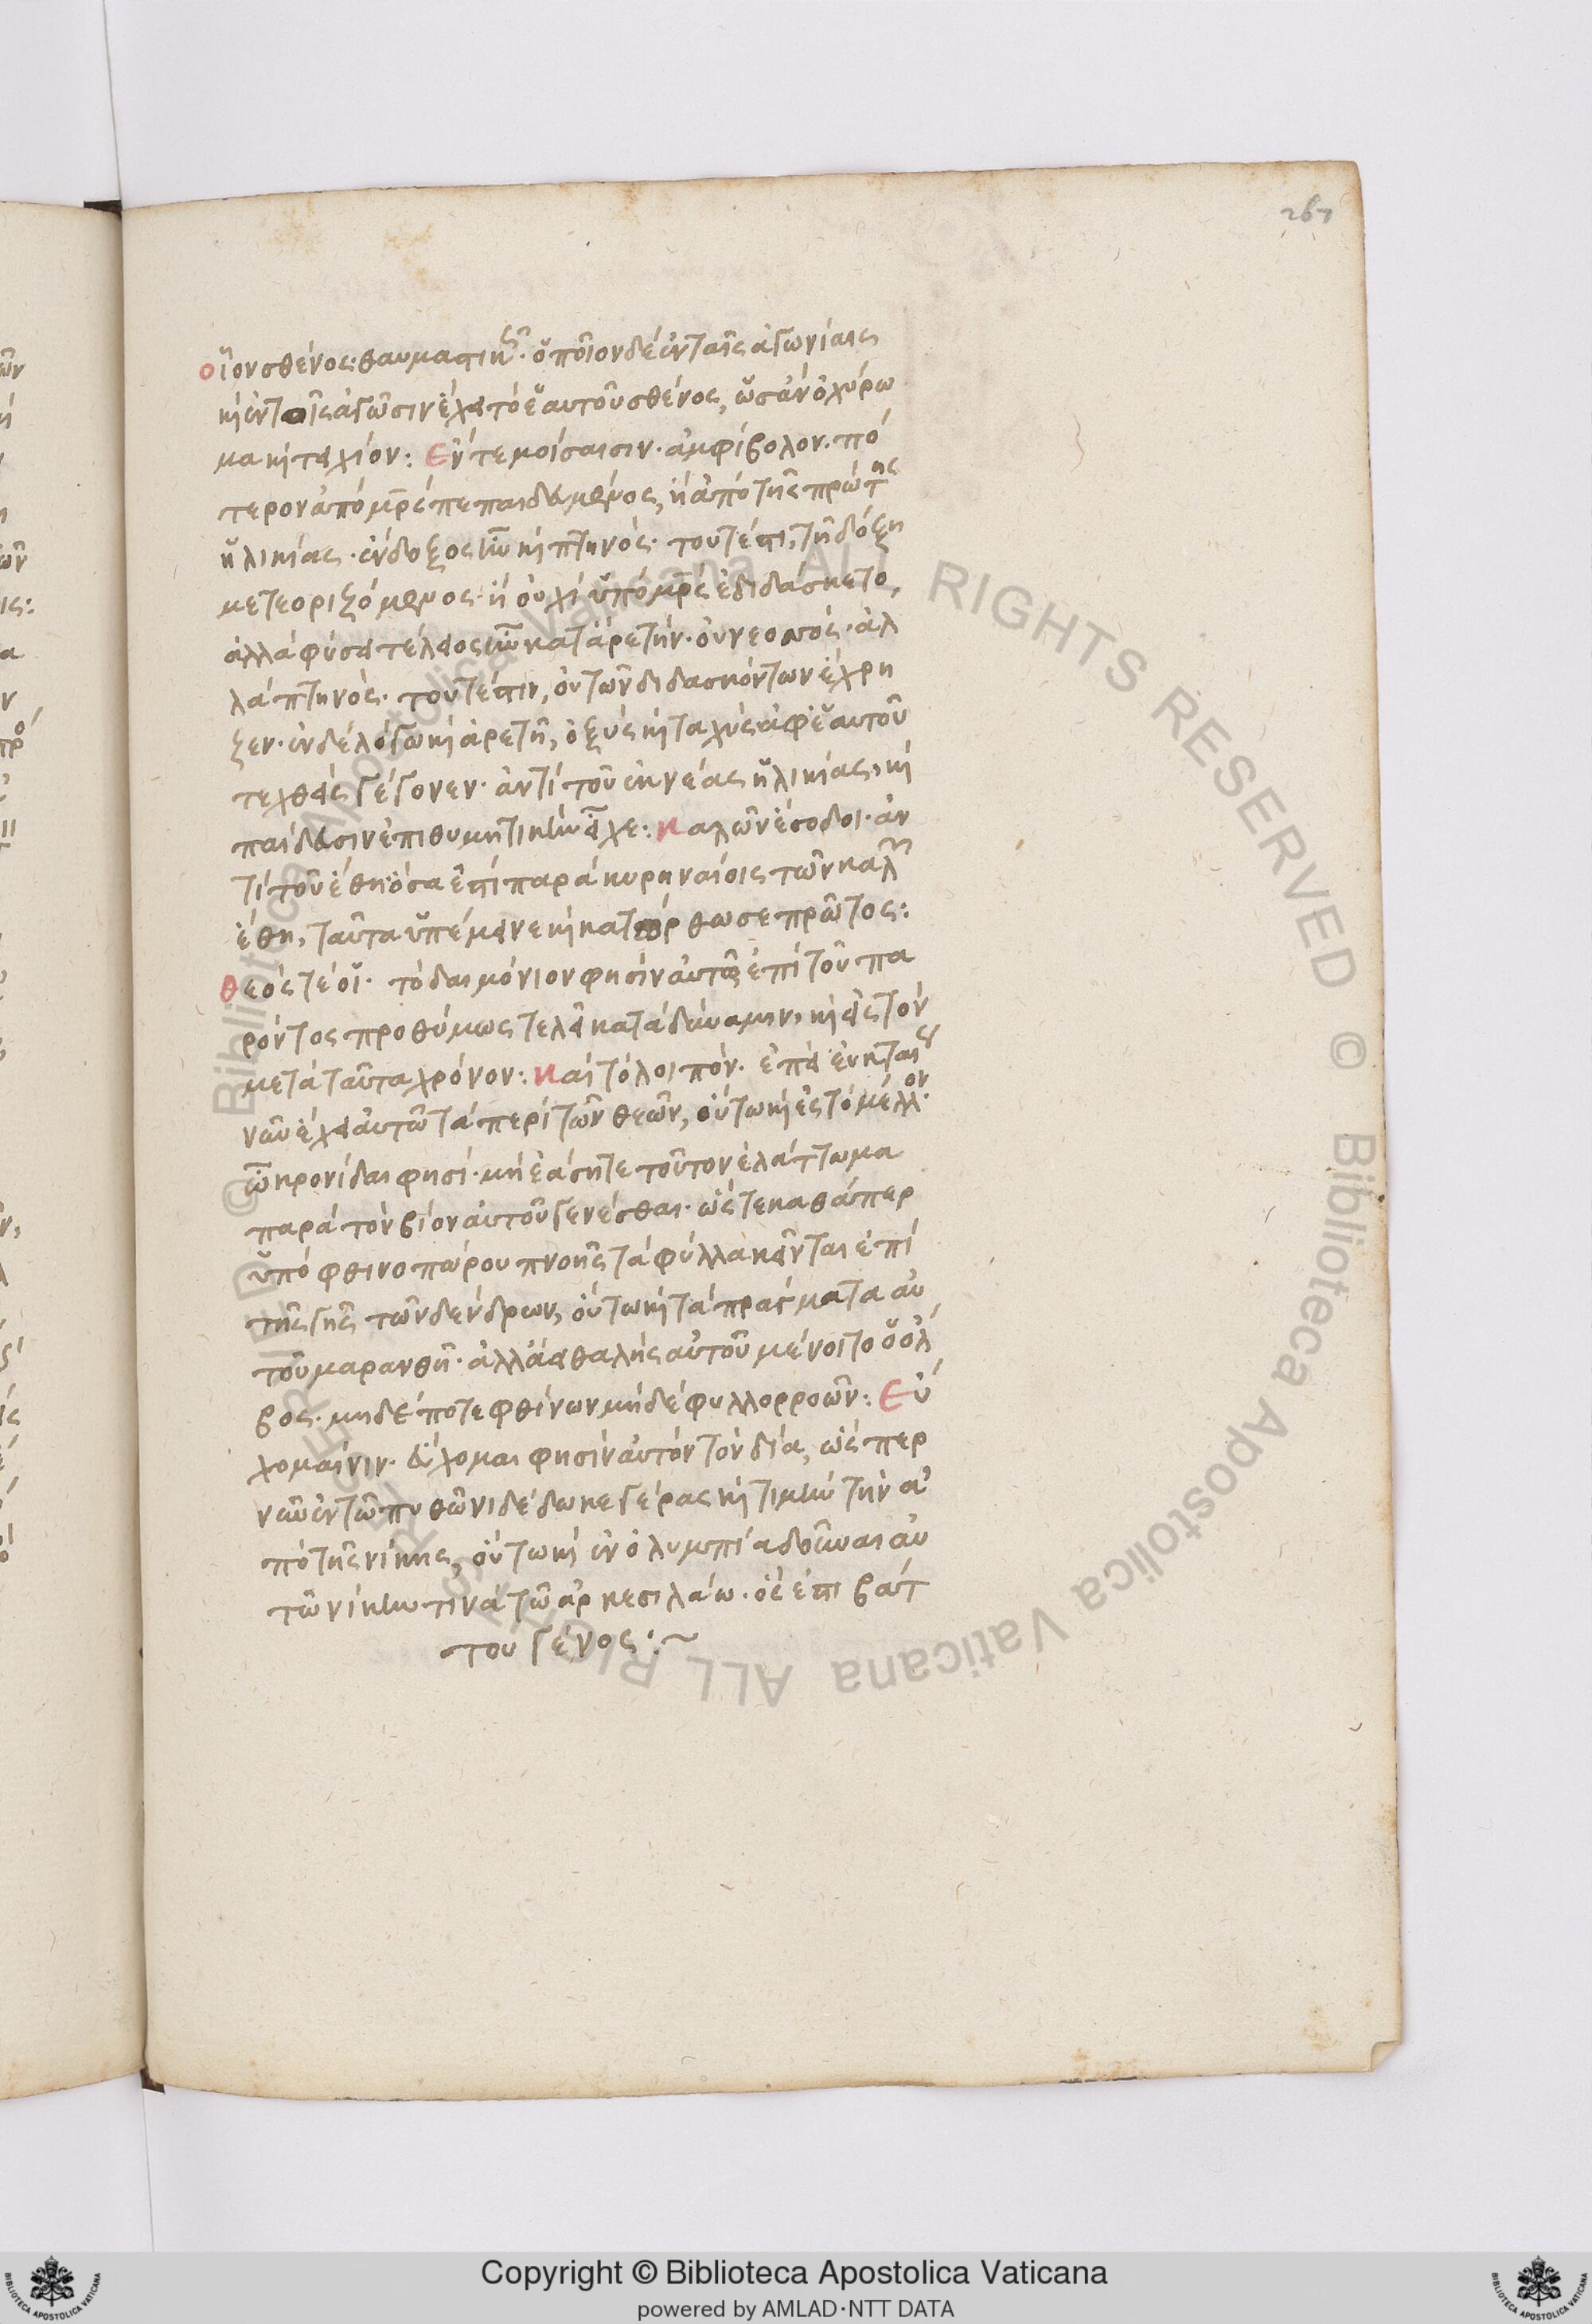 267
οἷον σθένος: θαυμαστικῶς. ὁποῖον δὲ ἐν ταῖς ἀγωνίαις
κὶ ἐν τοῖς ἀγῶσιν ἔχει τὸ ἑαυτοῦ σθένος, ὡσὰν ὀχύρω
μα κὶ τειχίον: Ἔν τε μοίσαισιν. ἀμφίβολον. πό
τερον ἀπὸ μρς πεπαιδευμένος, ἢ ἀπὸ τῆς πρώτης
ἡλικίας. ἔνδοξος ἦν κὶ πτηνός. τουτέστι, τῆ δόξη
μετεοριζόμενος. ἢ οὐχὶ ὑπὸ μρς ἐδιδάσκετο,
ἀλλὰ φύσει τέλειος ἦν κατ' ἀρετήν. οὐ νεοσσός. ἀλ
λὰ πτηνός. τουτέστιν, οὐ τῶν διδασκόντων ἔχρη
ζεν. ἐν δὲ λόγω κὶ ἀρετῆ, ὀξὺς κὶ ταχὺς ἀφ' ἑαυτοῦ
τεχθεὶς γέγονεν. ἀντὶ τοῦ ἐκ νέας ἡλικίας, κὶ
παίδευσιν ἐπιθυμητικὴν εἶχε: καλῶν ἔσοδοι. ἀν
τὶ τοῦ ἔθη ὅσα ἐστὶ παρὰ κυρηναίοις τῶν καλῶν
ἔθη, ταῦτα ὑπέμεινε κὶ κατώρθωσε πρῶτος:
θεός τέ οἱ. τὸ δαιμόνιόν φησιν αὐτῶ ἐπὶ τοῦ πα
ρόντος προθύμως τελεῖ κατὰ δύναμιν, κὶ εἰς τὸν
μετὰ ταῦτα χρόνον: καὶ τὸ λοιπόν. ἐπεὶ ἐν ταῖς
νῦν ἔχει αὐτῶ τὰ περὶ τῶν θεῶν, οὕτω κὶ ἐς τὸ μέλλον.
ὦ κρονίδαι φησί. μὴ ἐάσητε τοῦτον ἐλάττωμα
παρὰ τὸν βίον αὐτοῦ γενέσθαι. ὥστε καθάπερ
ὑπὸ φθινοπώρου πνοῆς τὰ φύλλα κεῖνται ἐπὶ
τῆς γῆς τῶν δένδρων, οὕτω κὶ τὰ πράγματα αὐ
τοῦ μαρανθῆ. ἀλλ' ἀειθαλὴς αὐτοῦ μένοιτο ὁ ὄλ
βος. μηδέποτε φθίνων μηδὲ φυλλορροῶν: Εὔ
χομαί νιν. εὔχομαι φησὶν αὐτὸν τὸν δία, ὥσπερ
νῦν ἐν τῶ πυθῶνι δέδωκε γέρας κὶ τιμὴν τὴν ἀ
πὸ τῆς νίκης, οὕτω κὶ ἐν ὀλυμπία δοῦναι αὐ
τῶ νίκην τινὰ τῶ ἀρκεσιλάω. ὅς ἐστι βάτ
του γένος:~
Copyright © Biblioteca Apostolica Vaticana
powered by AMLAD·NTT DATA